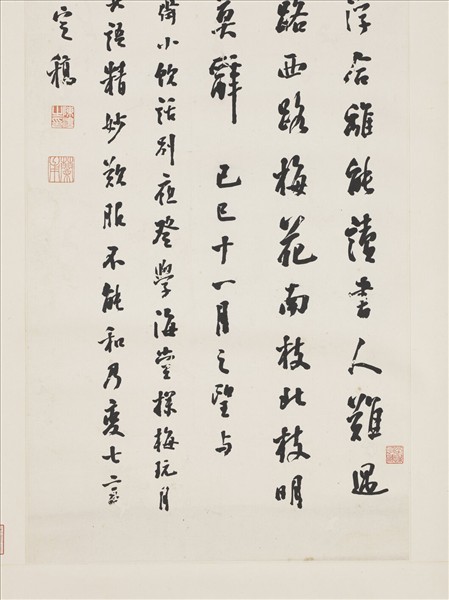 能讀書人難遇
路西路梅花南枝北枝明
莫辭 己巳十一月之望与
小飲話別夜登學海堂探梅玩月
語精妙歎服不能和乃變七言
定稿